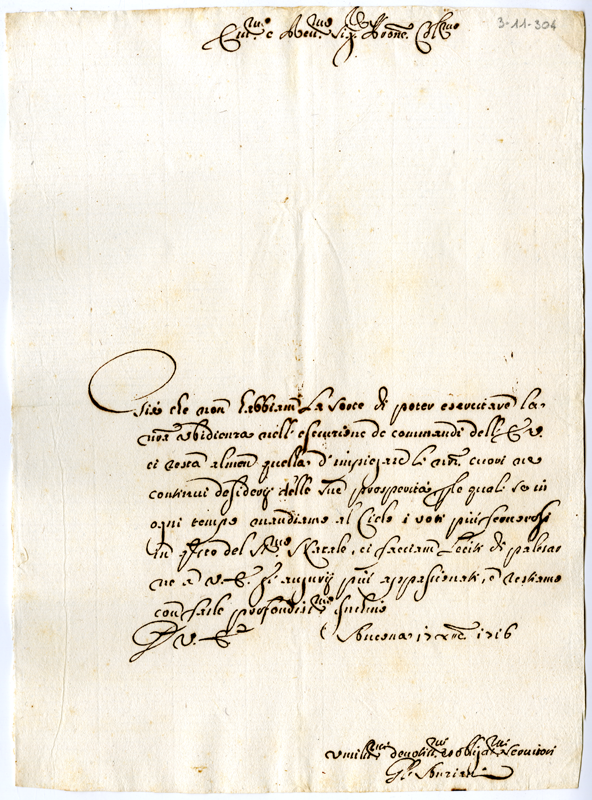 3-11-304
Em.mo e Rev.mo Sig.r P̄rone Col.mo
Già che non habbiam la sorte di poter esercitare la
nr̄a ubidienza nell'esecuzione de comandi dell'E. V.
ci resta almen quella d'impiegare li nr̄i cuori ne
continui desiderij delle sue prosperità, p le quali se in
ogni tempo mandiamo al Cielo i voti più fervorosi
in q̄sto del S.mo Natale, ci facciam leciti di palesar
ne a V. E. gl'augurij più appassionati, e restiamo
con farle profondiss.mo Inchino
D V. E.
Ancona 17 xb̄re 1716
Umilis.mi devotis.mi et obblig.mi Servitori
Gl'Anziani